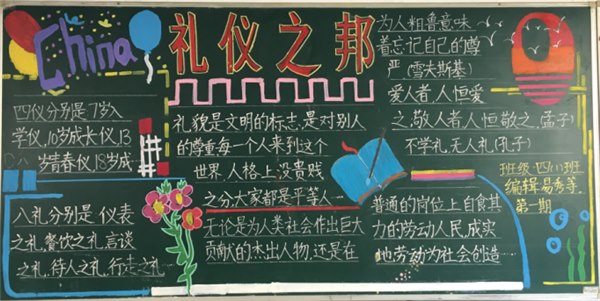 China
四仪分别是7岁入
学仪,10岁成长仪,13
岁青春仪,18岁成
八礼分别是 仪表
之礼,餐饮之礼,言谈
之礼,待人之礼,行走之礼
礼仪之邦
礼貌是文明的标志,是对别人
的尊重每一个人来到这个
世界,人格上没贵贱
之分,大家都是平等人
无论是为人类社会作出巨大
贡献的杰出人物,还是在
普通的岗位上自食其
力的劳动人民,成实
地劳动为社会创造
为人粗鲁意味
着忘记自己的尊
严.(雪夫斯基)
爱人者,人恒爱
之,敬人者人恒敬之.(孟子)
不学礼,无人礼(孔子)
班级 四(1)班
编辑 易秀等
第一期